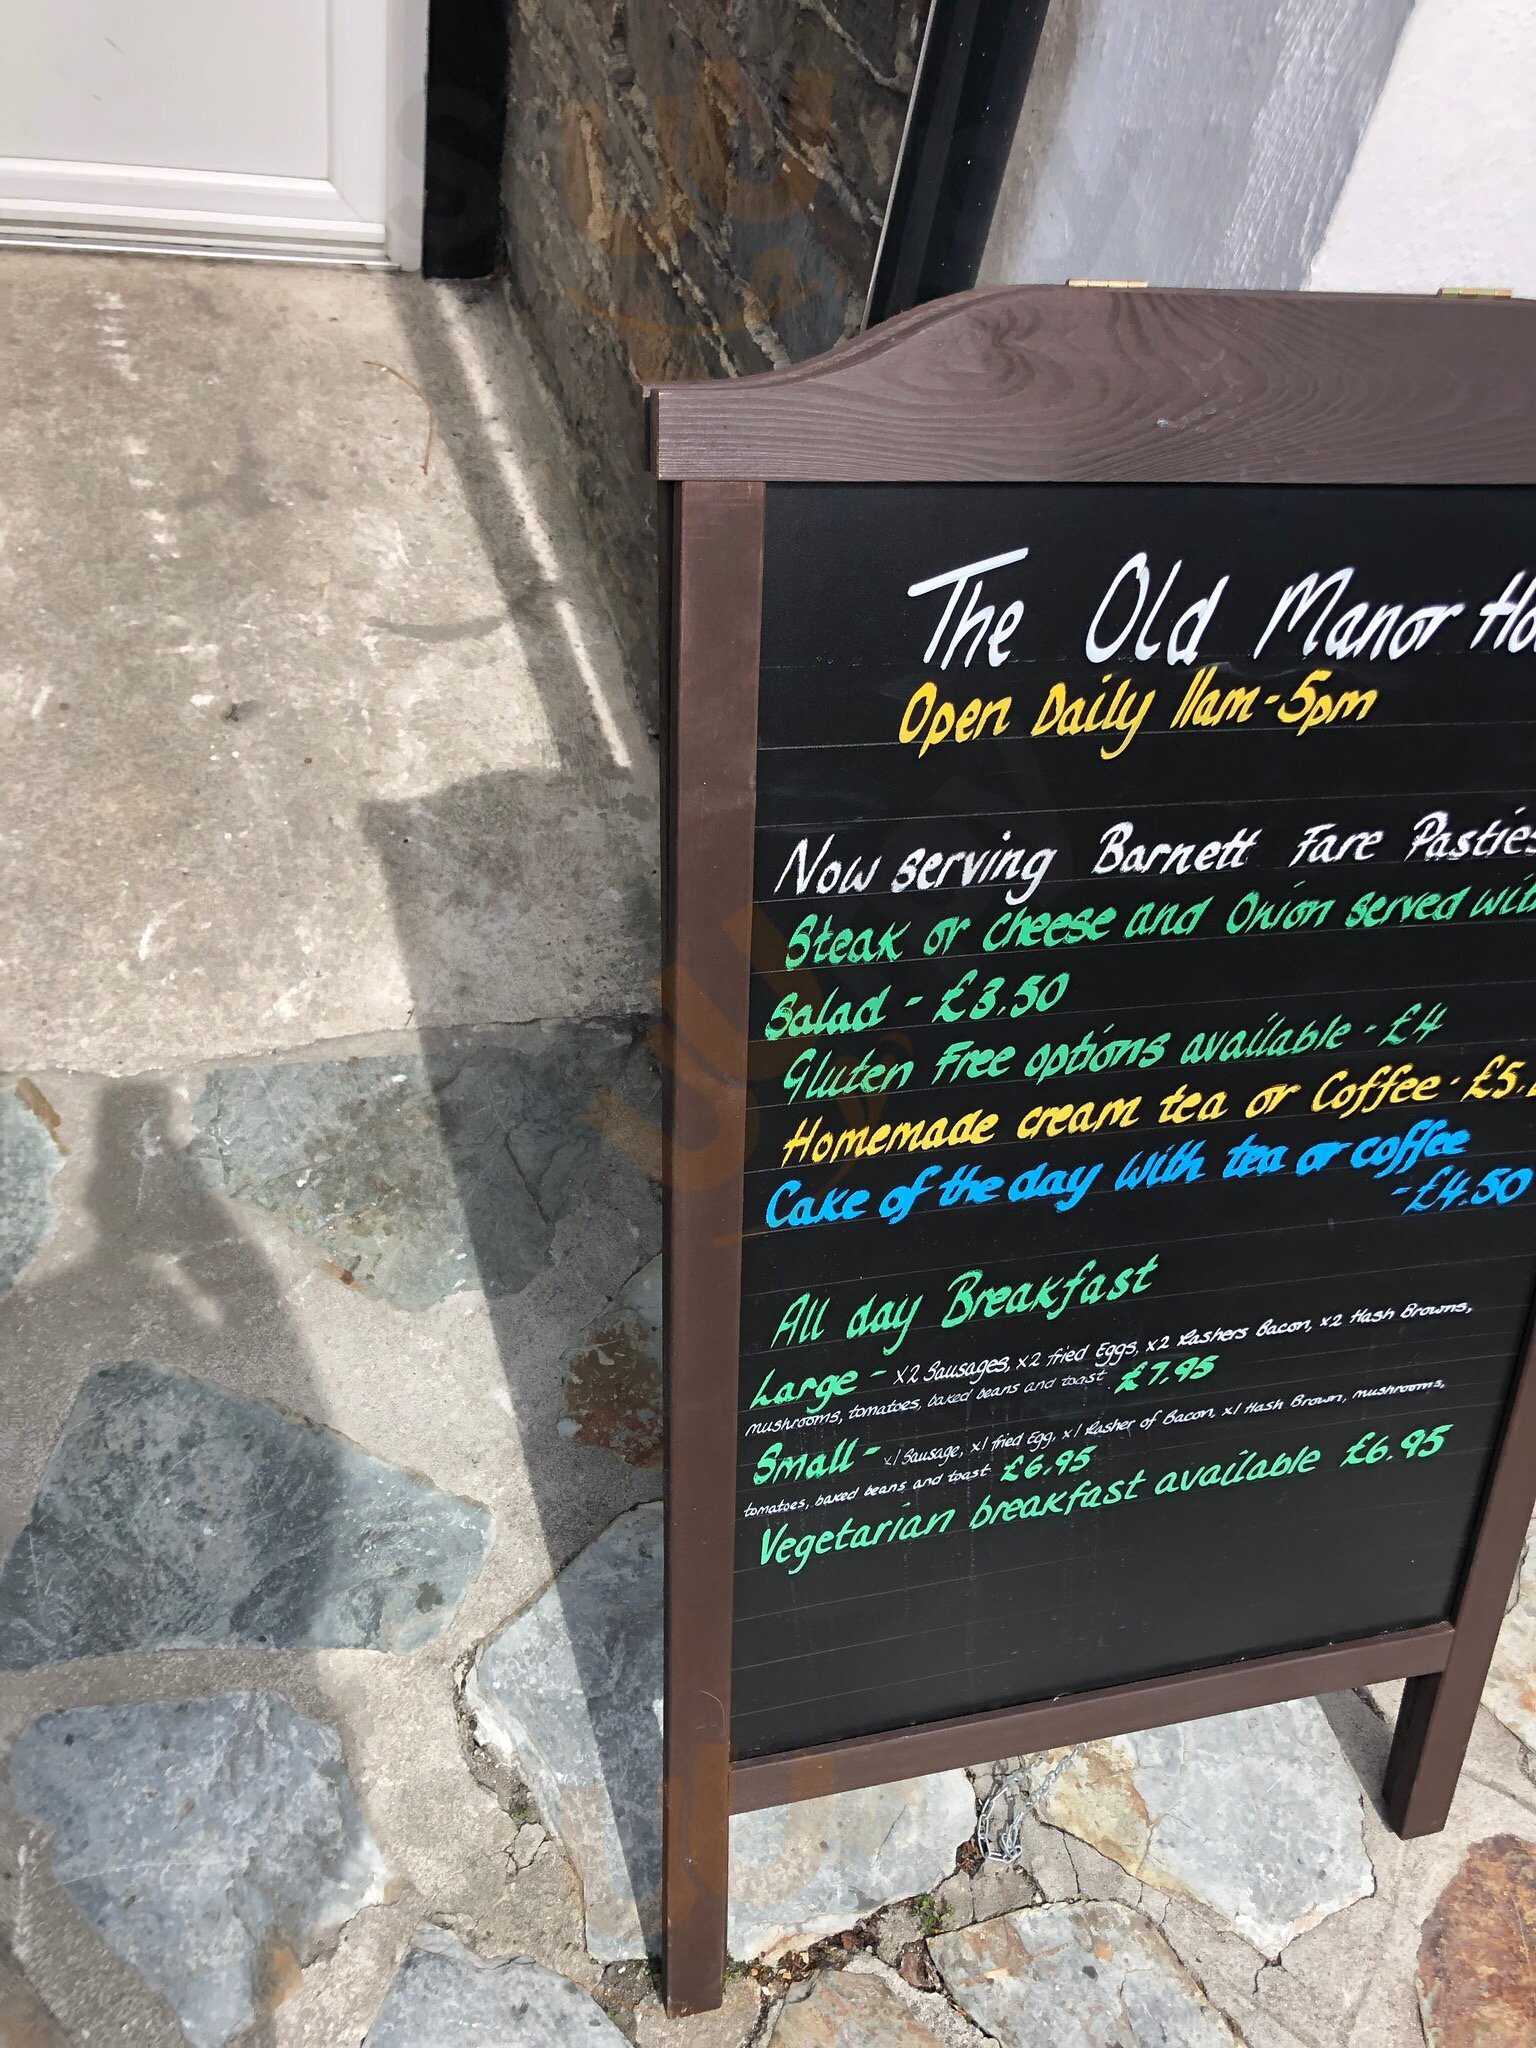 The Old Manor
Open Daily 11am-5pm
Now serving Barnett Fare Pasties
Steak or cheese and Onion served
Salad - £3.50
Gluten Free options available - £4
Homemade cream tea or Coffee - £5.
Cake of the day with tea or coffee
- £4.50
All day Breakfast
Large - x2 Sausages, x2 fried Eggs, x2 Rashers Bacon, x2 Hash Browns,
mushrooms, tomatoes, baked beans and toast £7.95
Small - x1 Sausage, x1 fried Egg, x1 Rasher of Bacon, x1 Hash Brown, mushrooms,
tomatoes, baked beans and toast £6.95
Vegetarian breakfast available £6.95